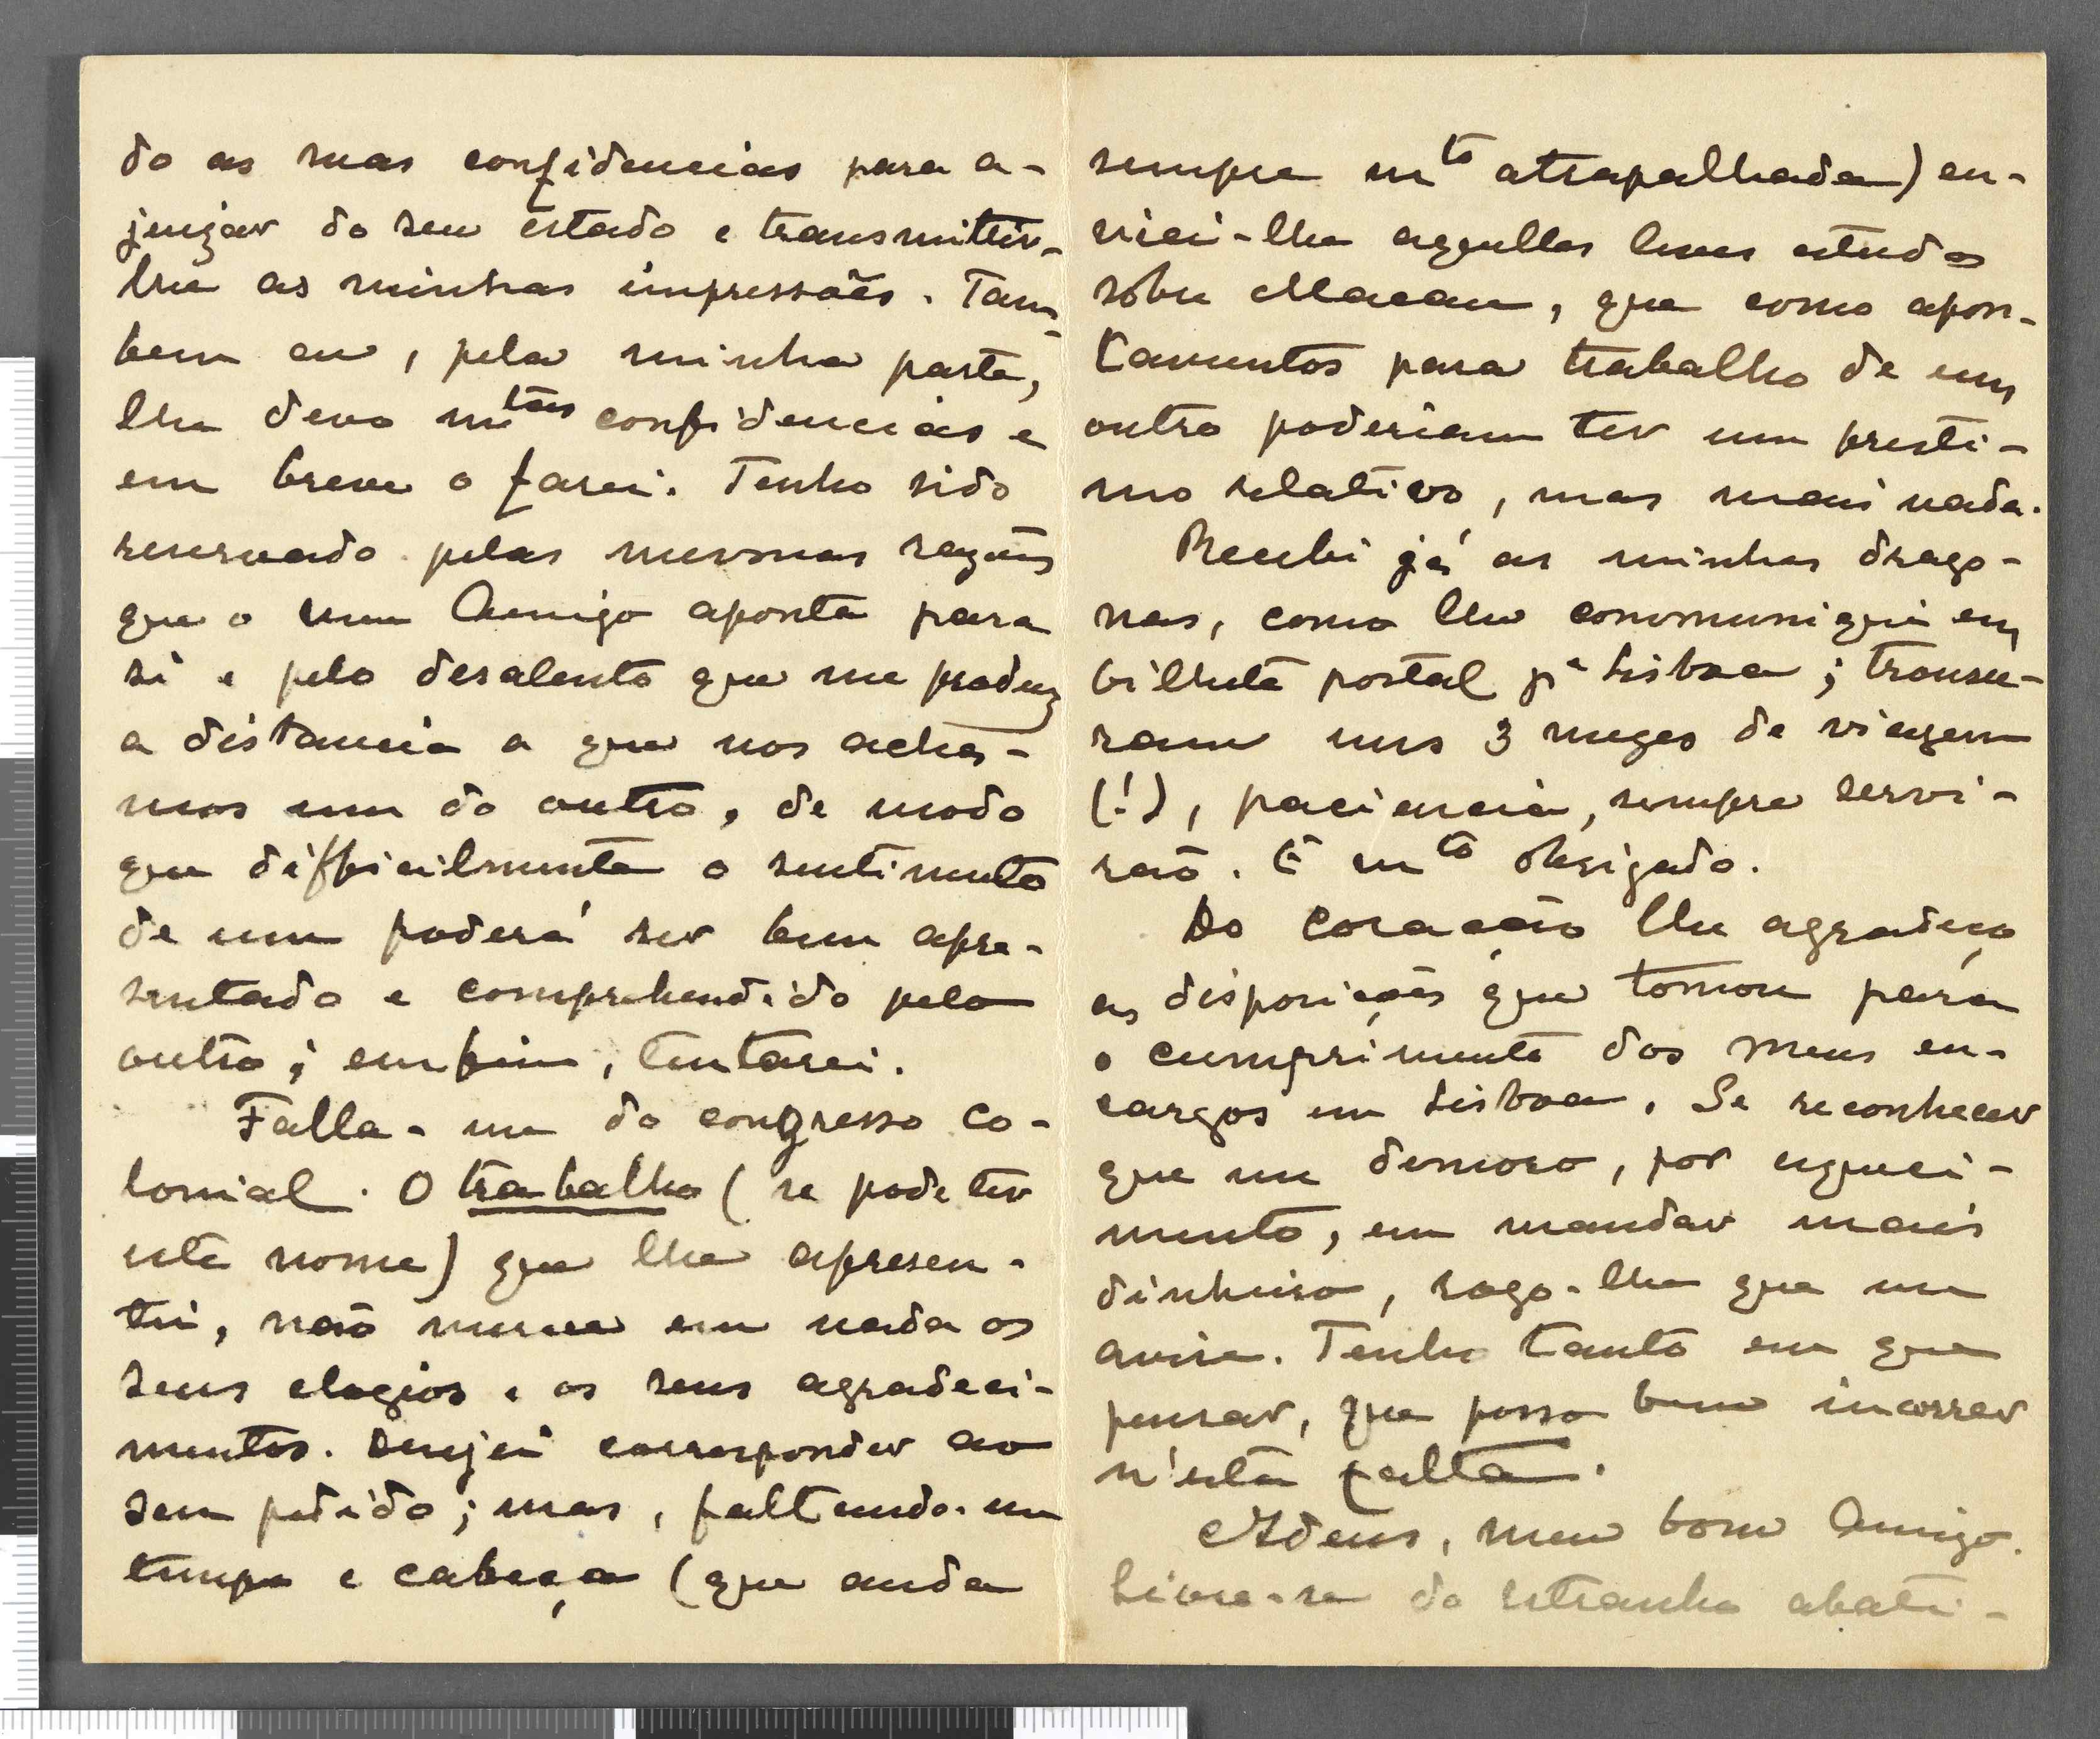 do as suas confidencias para a-
juizar do seu estado e transmittir-
lhe as minhas impressões. Tam-
bem eu, pela minha parte,
lhe devo m.tas confidencias e
em breve o farei. Tenho sido
reservado pelas mesmas razões
que o meu Amigo aponta para
si e pelo desalento que me produz
a distancia a que nos acha-
mos um do outro, de modo
que difficilmente o sentimento
de um poderá ser bem apre-
sentado e comprehendido pelo
outro; emfim, tentarei.
Falla-me do congresso co-
lonial. O trabalho (se pode ter
este nome) que lhe apresen-
tei, não merece em nada os
seus elogios e os seus agradeci-
mentos. Desejei corresponder ao
seu pedido; mas, faltando-me
tempo e cabeça (que anda
sempre m.to atrapalhada) en-
viei-lhe aquelles leves estudos
sobre Macau, que como apon-
tamentos para trabalho de um
outro poderiam ter um presti-
mo relativo, mas mais nada.
Recebi já as minhas drago-
nas, como lhe communiquei em
bilhete postal p.a Lisboa; trouxe-
ram uns 3 mezes de viagem
(!), paciencia, sempre servi-
rão. E m.to obrigado.
Do coração lhe agradeço
as disposições que tomou para
o cumprimento dos meus en-
cargos em Lisboa. Se reconhecer
que me demoro, por esqueci-
mento, em mandar mais
dinheiro, rogo-lhe que me
avise. Tenho tanto em que
pensar, que posso bem incorrer
n'esta falta.
Adeus, meu bom Amigo.
Livre-se do estranho abati-